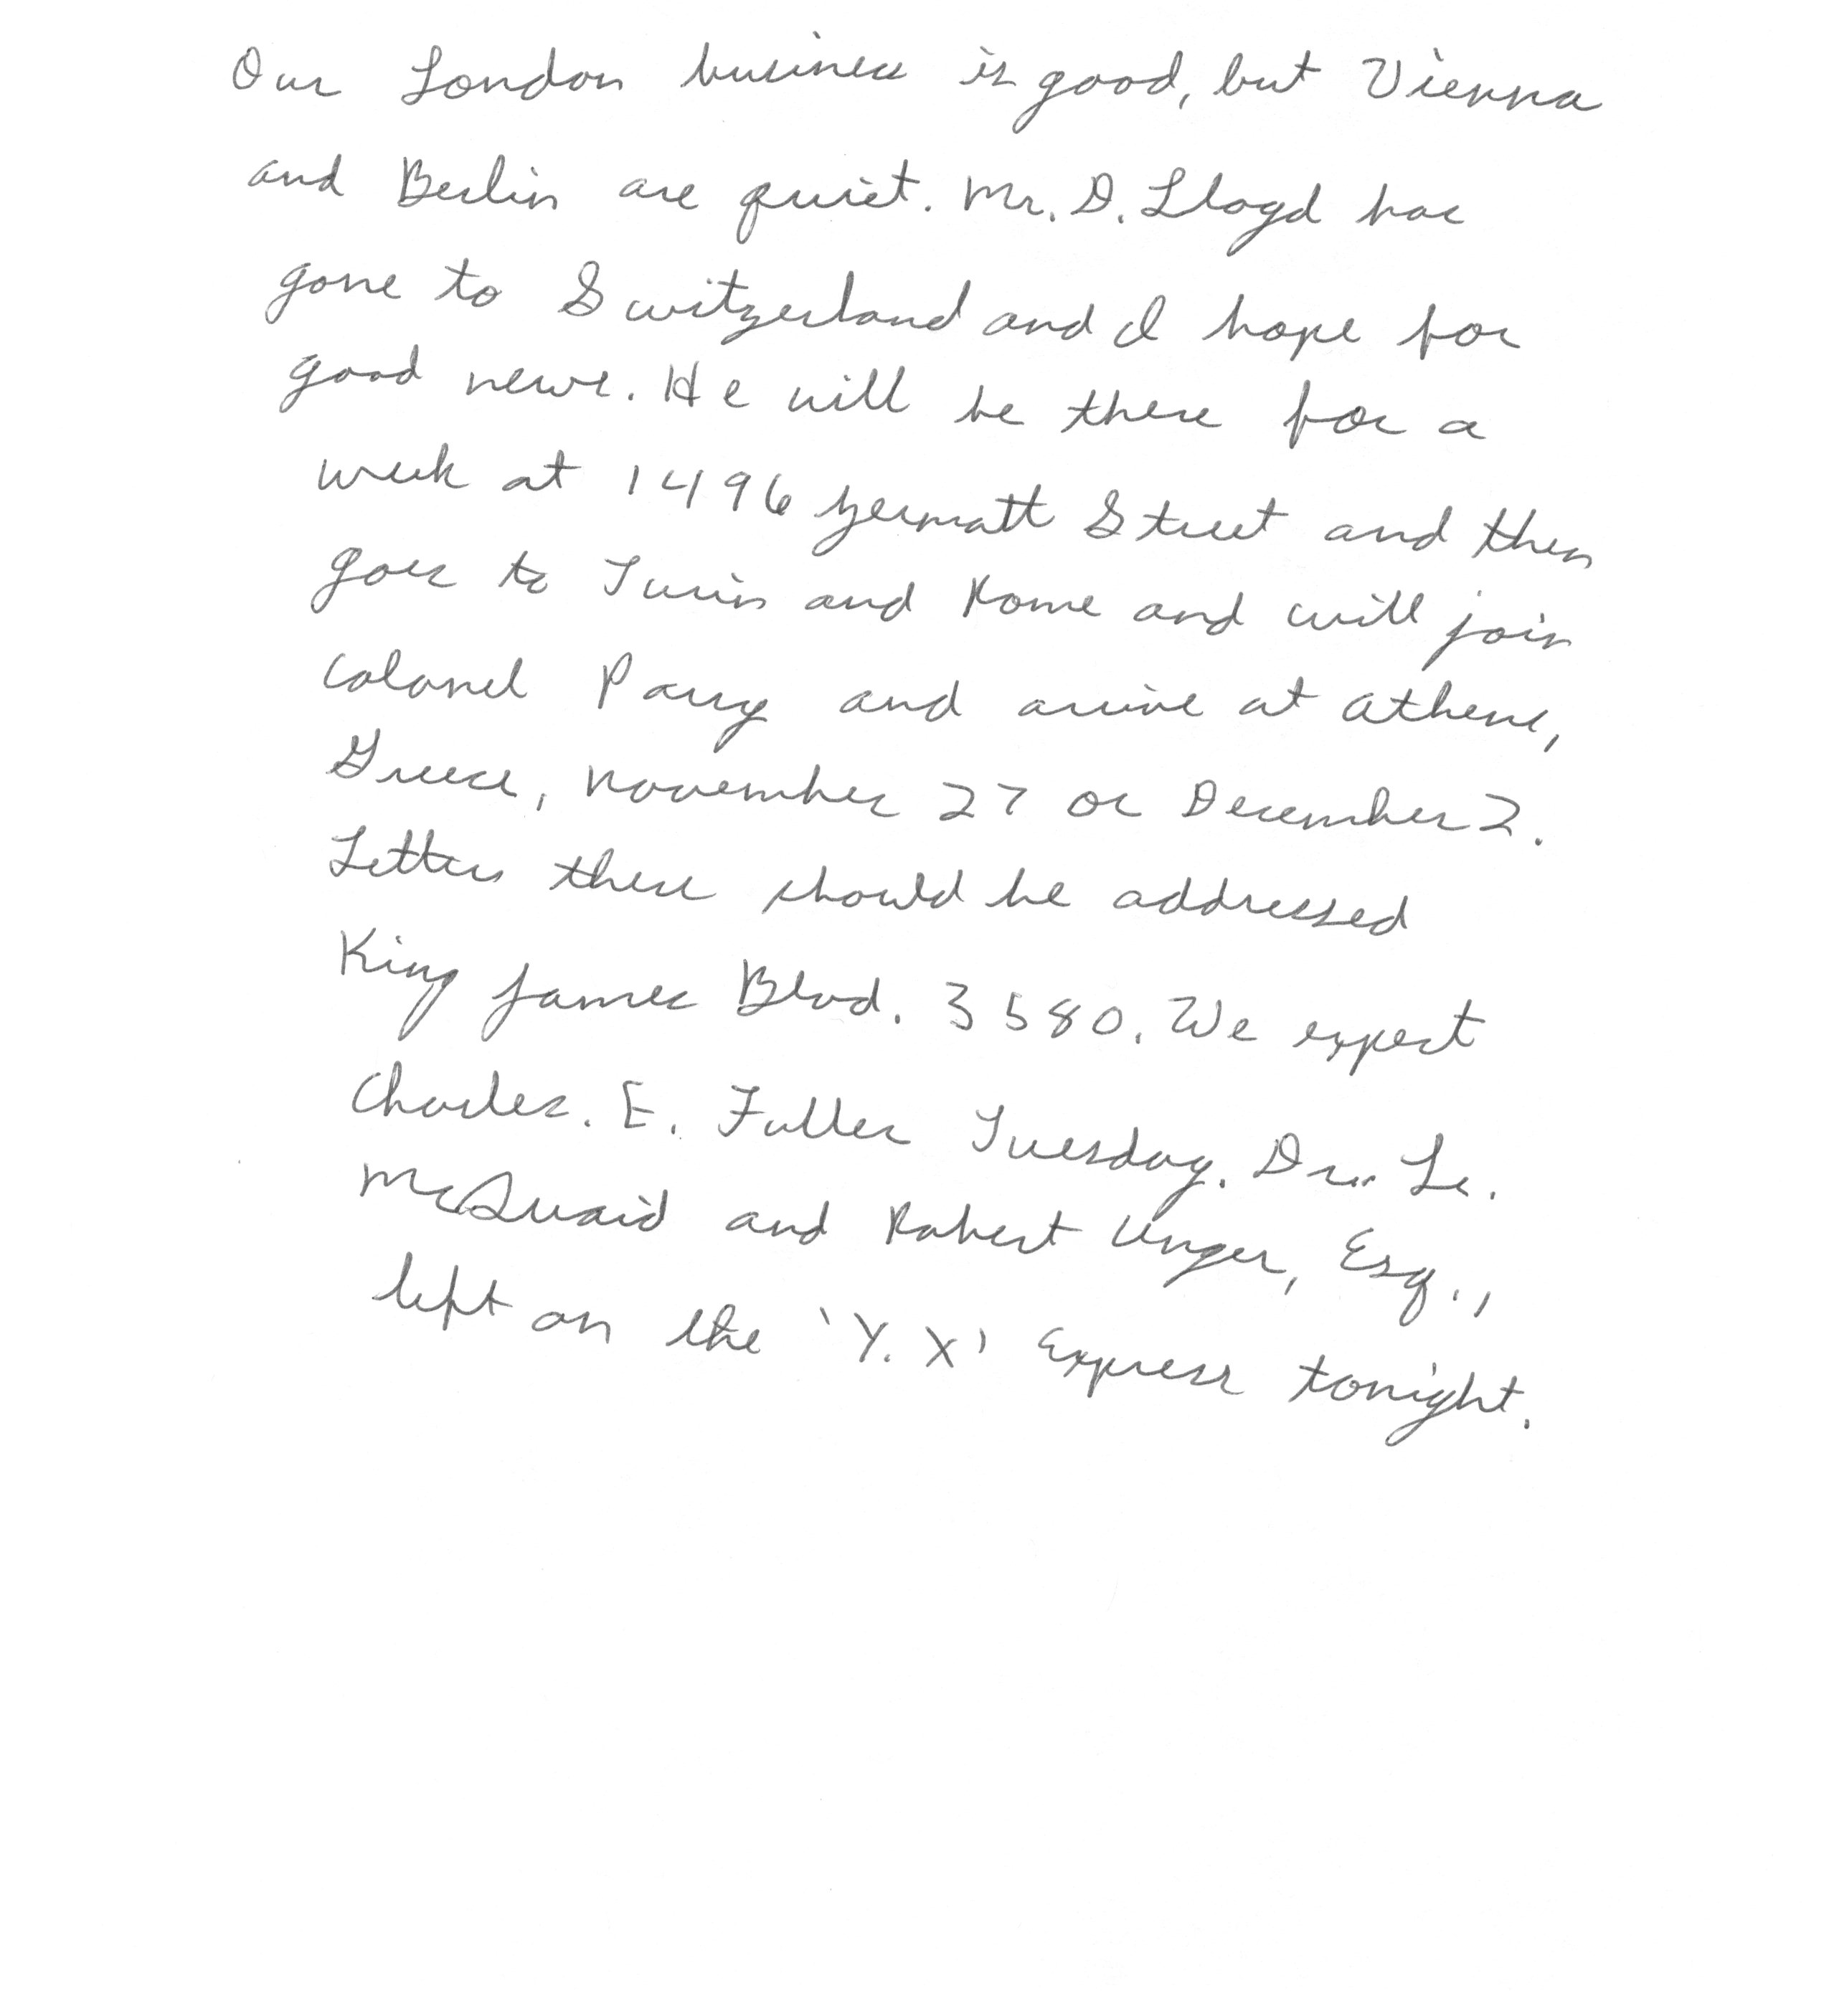 Our London business is good, but Vienna
and Berlin are quiet. Mr. D. Lloyd has
gone to Switzerland and I hope for
good news. He will be there for a
week at 1496 Zermatt Street and then
goes to Turin and Rome and will join
Colonel Parry and arrive at Athens,
Greece, November 27 or December 2.
Letters there should be addressed
King James Blvd. 3580. We expect
Charles. E. Fuller Tuesday. Dr. L.
McQuaid and Robert Unger, Esq.,
left on the 'Y. X' Express tonight.